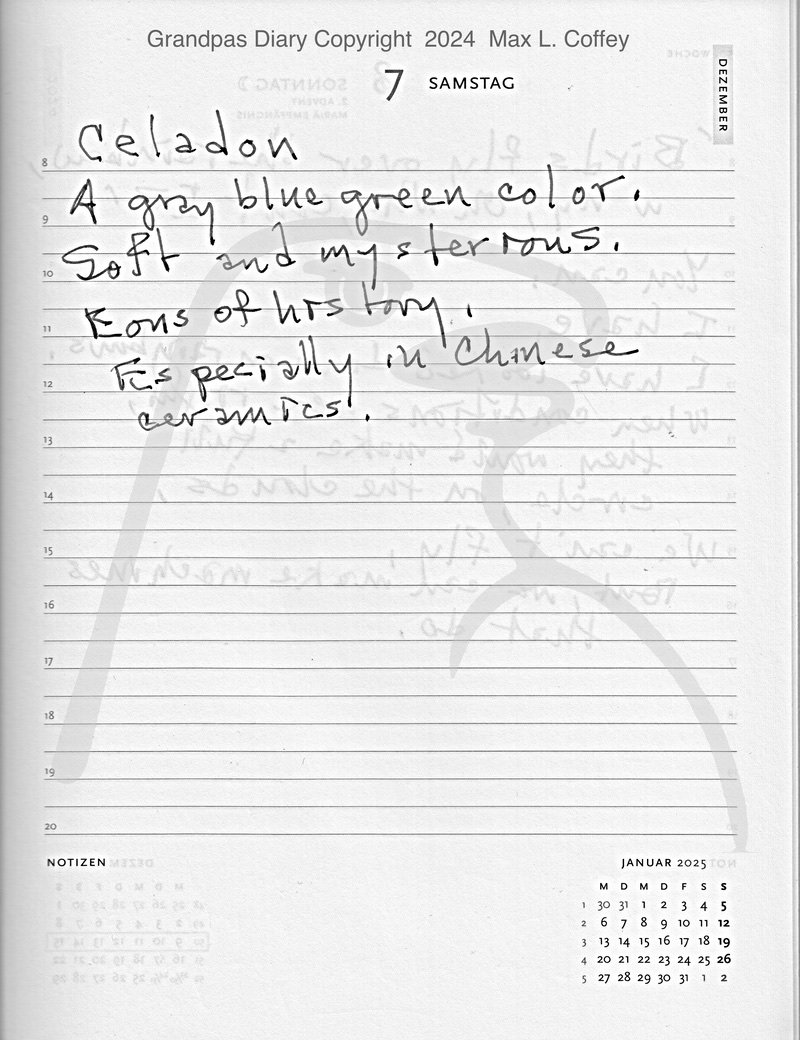 Grandpas Diary Copyright 2024 Max L. Coffey
7 SAMSTAG
DEZEMBER
Celadon
8
A gray blue green color.
9
Soft and mysterious.
10
Eons of history.
11
Especially in Chinese
12
ceramics.
13
14
15
16
17
18
19
20
NOTIZEN
JANUAR 2025
M D M D F S S
1 30 31 1 2 3 4 5
2 6 7 8 9 10 11 12
3 13 14 15 16 17 18 19
4 20 21 22 23 24 25 26
5 27 28 29 30 31 1 2